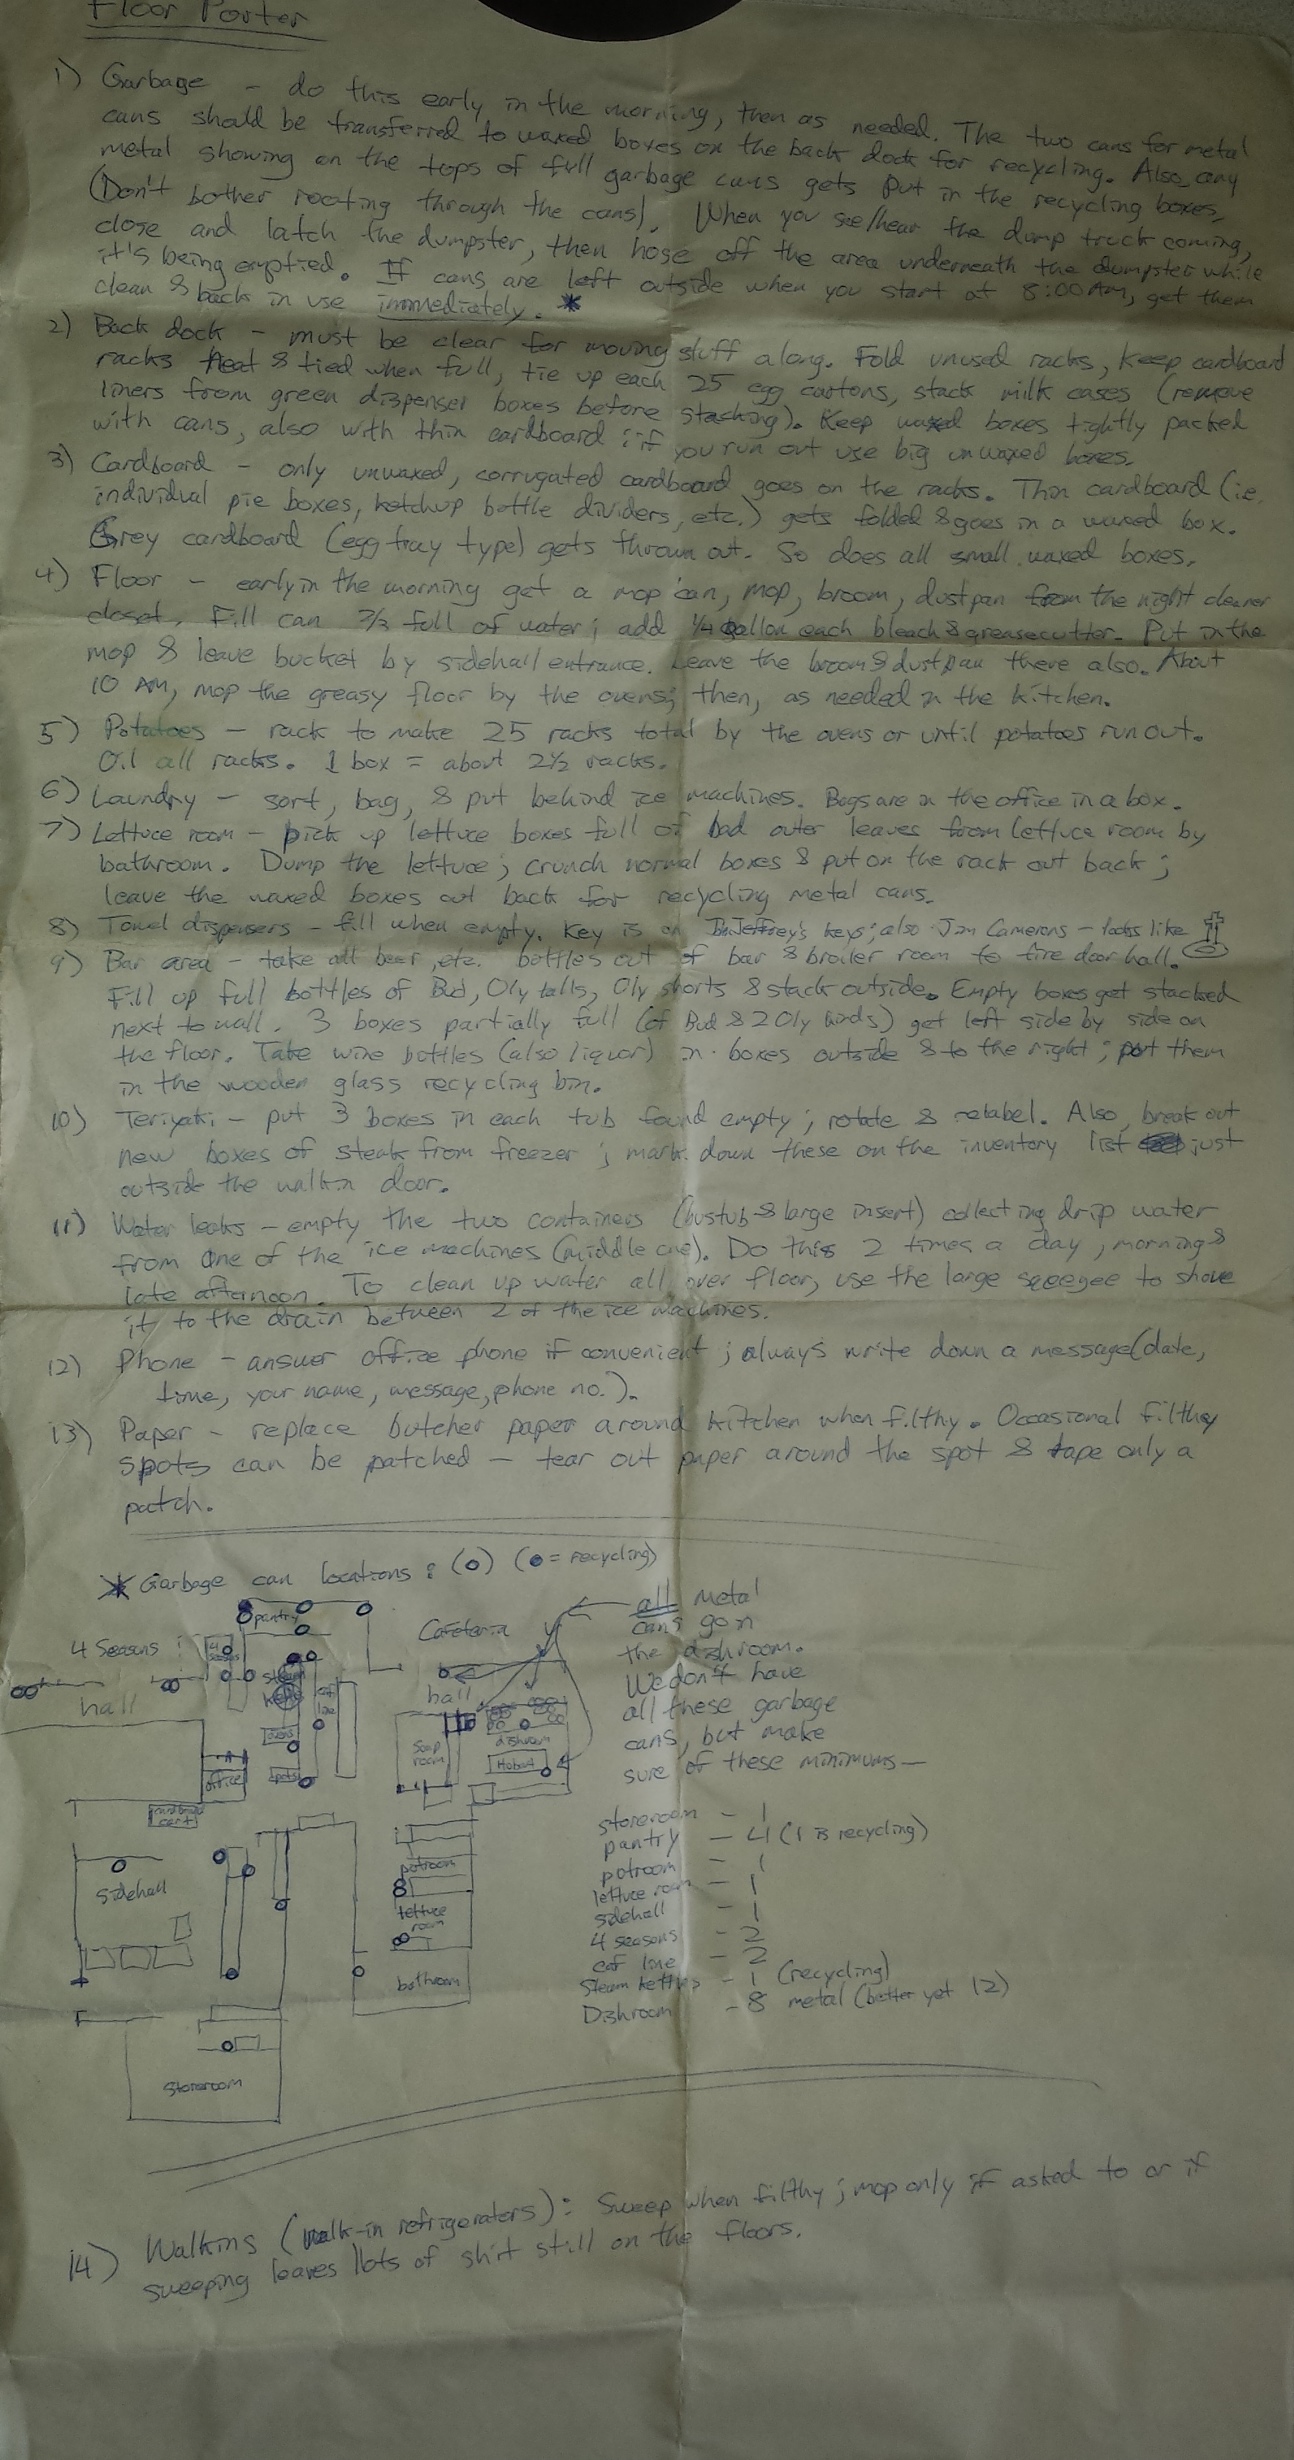 Floor Porter
1) Garbage - do this early in the morning, then as needed. The two cans for metal
cans should be transferred to waxed boxes on the back dock for recycling. Also, any
metal showing on the tops of full garbage cans gets put in the recycling boxes,
(Don't bother rooting through the cans). When you see/hear the dump truck coming,
close and latch the dumpster, then hose off the area underneath the dumpster while
it's being emptied. If cans are left outside when you start at 8:00 AM, get them
clean & back in use immediately. *
2) Back dock - must be clear for moving stuff along. Fold unused racks, keep cardboard
racks neat & tied when full, tie up each 25 egg cartons, stack milk cases (remove
liners from green dispenser boxes before stacking). Keep waxed boxes tightly packed
with cans, also with thin cardboard; if you run out use big unwaxed boxes.
3) Cardboard - only unwaxed, corrugated cardboard goes on the racks. Thin cardboard (ie.
individual pie boxes, ketchup bottle dividers, etc.) gets folded & goes in a waxed box.
Grey cardboard (egg tray type) gets thrown out. So does all small waxed boxes.
4) Floor - early in the morning get a mop can, mop, broom, dustpan from the night cleaner
closet. Fill can 2/3 full of water; add 1/4 gallon each bleach & greasecutter. Put in the
mop & leave bucket by sidehall entrance. Leave the broom & dustpan there also. About
10 AM, mop the greasy floor by the ovens; then, as needed in the kitchen.
5) Potatoes - rack to make 25 racks total by the ovens or until potatoes run out.
Oil all racks. 1 box = about 2 1/2 racks.
6) Laundry - sort, bag, & put behind ice machines. Bags are in the office in a box.
7) Lettuce room - pick up lettuce boxes full of bad outer leaves from lettuce room by
bathroom. Dump the lettuce; crunch normal boxes & put on the rack out back;
leave the waxed boxes out back for recycling metal cans.
8) Towel dispensers - fill when empty. Key is on Jeffrey's keys; also Jim Camerons - looks like
9) Bar area - take all beer, etc. bottles out of bar & broiler room to fire door hall.
Fill up full bottles of Bud, Oly talls, Oly shorts & stack outside. Empty boxes get stacked
next to wall. 3 boxes partially full (of Bud & 2 Oly kinds) get left side by side on
the floor. Take wine bottles (also liquor) in boxes outside & to the right; put them
in the wooden glass recycling bin.
10) Teriyaki - put 3 boxes in each tub found empty; rotate & relabel. Also, break out
new boxes of steak from freezer; mark down these on the inventory list just
outside the walkin door.
11) Water leaks - empty the two containers (bustub & large insert) collecting drip water
from one of the ice machines (middle one). Do this 2 times a day, morning &
late afternoon. To clean up water all over floor, use the large squeegee to shove
it to the drain between 2 of the ice machines.
12) Phone - answer office phone if convenient; always write down a message (date,
time, your name, message, phone no.).
13) Paper - replace butcher paper around kitchen when filthy. Occasional filthy
spots can be patched - tear out paper around the spot & tape only a
patch.
* Garbage can locations: (o) (● = recycling)
all metal
cans go in
the dishroom.
We don't have
all these garbage
cans, but make
sure of these minimums -
pantry
4 Seasons
4 Seasons
Cafeteria
hall
steam kettles
caf line
hall
ovens
office
pots
soap room
dishroom
Hobart
cardboard cart
storeroom - 1
pantry - 4 (1 is recycling)
potroom - 1
lettuce room - 1
sidehall - 1
4 seasons - 2
caf line - 2
steam kettles - 1 (recycling)
Dishroom - 8 metal (better yet 12)
sidehall
potroom
lettuce room
bathroom
storeroom
14) Walkins (walk-in refrigerators): Sweep when filthy; mop only if asked to or if
sweeping leaves lots of shit still on the floors.